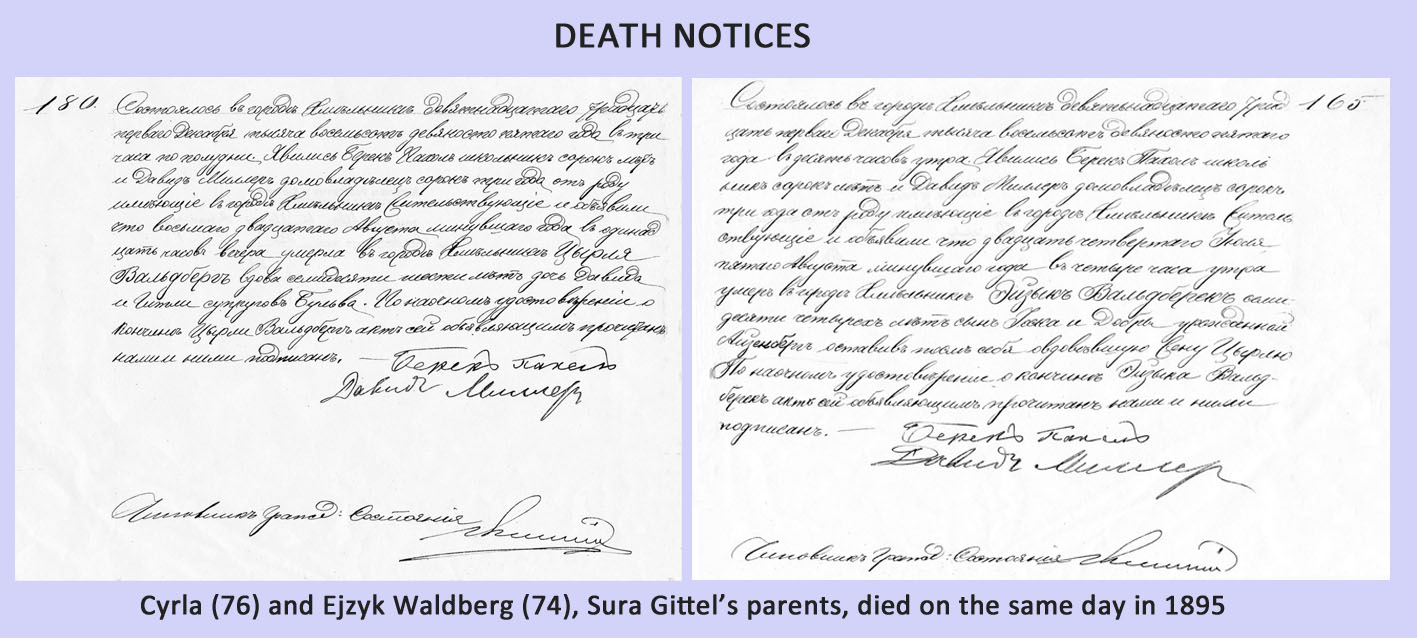 DEATH NOTICES
180.
Состоялось въ городѣ Хмѣльникѣ девятнадцатаго тридцать
перваго Декабря тысяча восемьсотъ девяносто пятаго года въ три
часа по полудни. Явились Берекъ Пахоль школьникъ сорокъ лѣтъ
и Давидъ Миллеръ домовладѣлецъ сорокъ три года отъ роду
имѣющіе въ городѣ Хмѣльникѣ жительствующіе и объявили
что восьмаго двадцатаго Августа минувшаго года въ одинад
цать часовъ вечера умерла въ городѣ Хмѣльникѣ Цырля
Вальдбергъ вдова семидесяти шести лѣтъ дочь Давида
и Гитли супруговъ По наочномъ удостовѣреніи о
кончинѣ Цырли Вальдбергъ актъ сей объявляющимъ прочитанъ
нами и ними подписанъ. —
Давидъ Миллеръ
Чиновникъ Гражд: Состоянія
165
Состоялось въ городѣ Хмѣльникѣ девятьнадцатаго трид
цать перваго Декабря тысяча восемьсотъ девяносто пятаго
года въ десять часовъ утра. Явились Берекъ Пахоль школь
никъ сорокъ лѣтъ и Давидъ Миллеръ домовладѣлецъ сорокъ
три года отъ роду имѣющіе въ городѣ Хмѣльникѣ жител
ствующіе и объявили что двадцать четвертаго Іюля
пятаго Августа минувшаго года въ четыре часа утра
умеръ въ городѣ Хмѣльникѣ Эйзыкъ Вальдберекъ семи
десяти четырехъ лѣтъ сынъ и Добры урожденной
Айзенбергъ оставивъ послѣ себя овдовѣвшую жену Цырлю
По наочномъ удостовѣреніи о кончинѣ Эйзыка Вальд-
берекъ актъ сей объявляющимъ прочитанъ нами и ними
подписанъ. —
Давидъ Миллеръ
Чиновникъ Гражд: Состоянія
Cyrla (76) and Ejzyk Waldberg (74), Sura Gittel’s parents, died on the same day in 1895